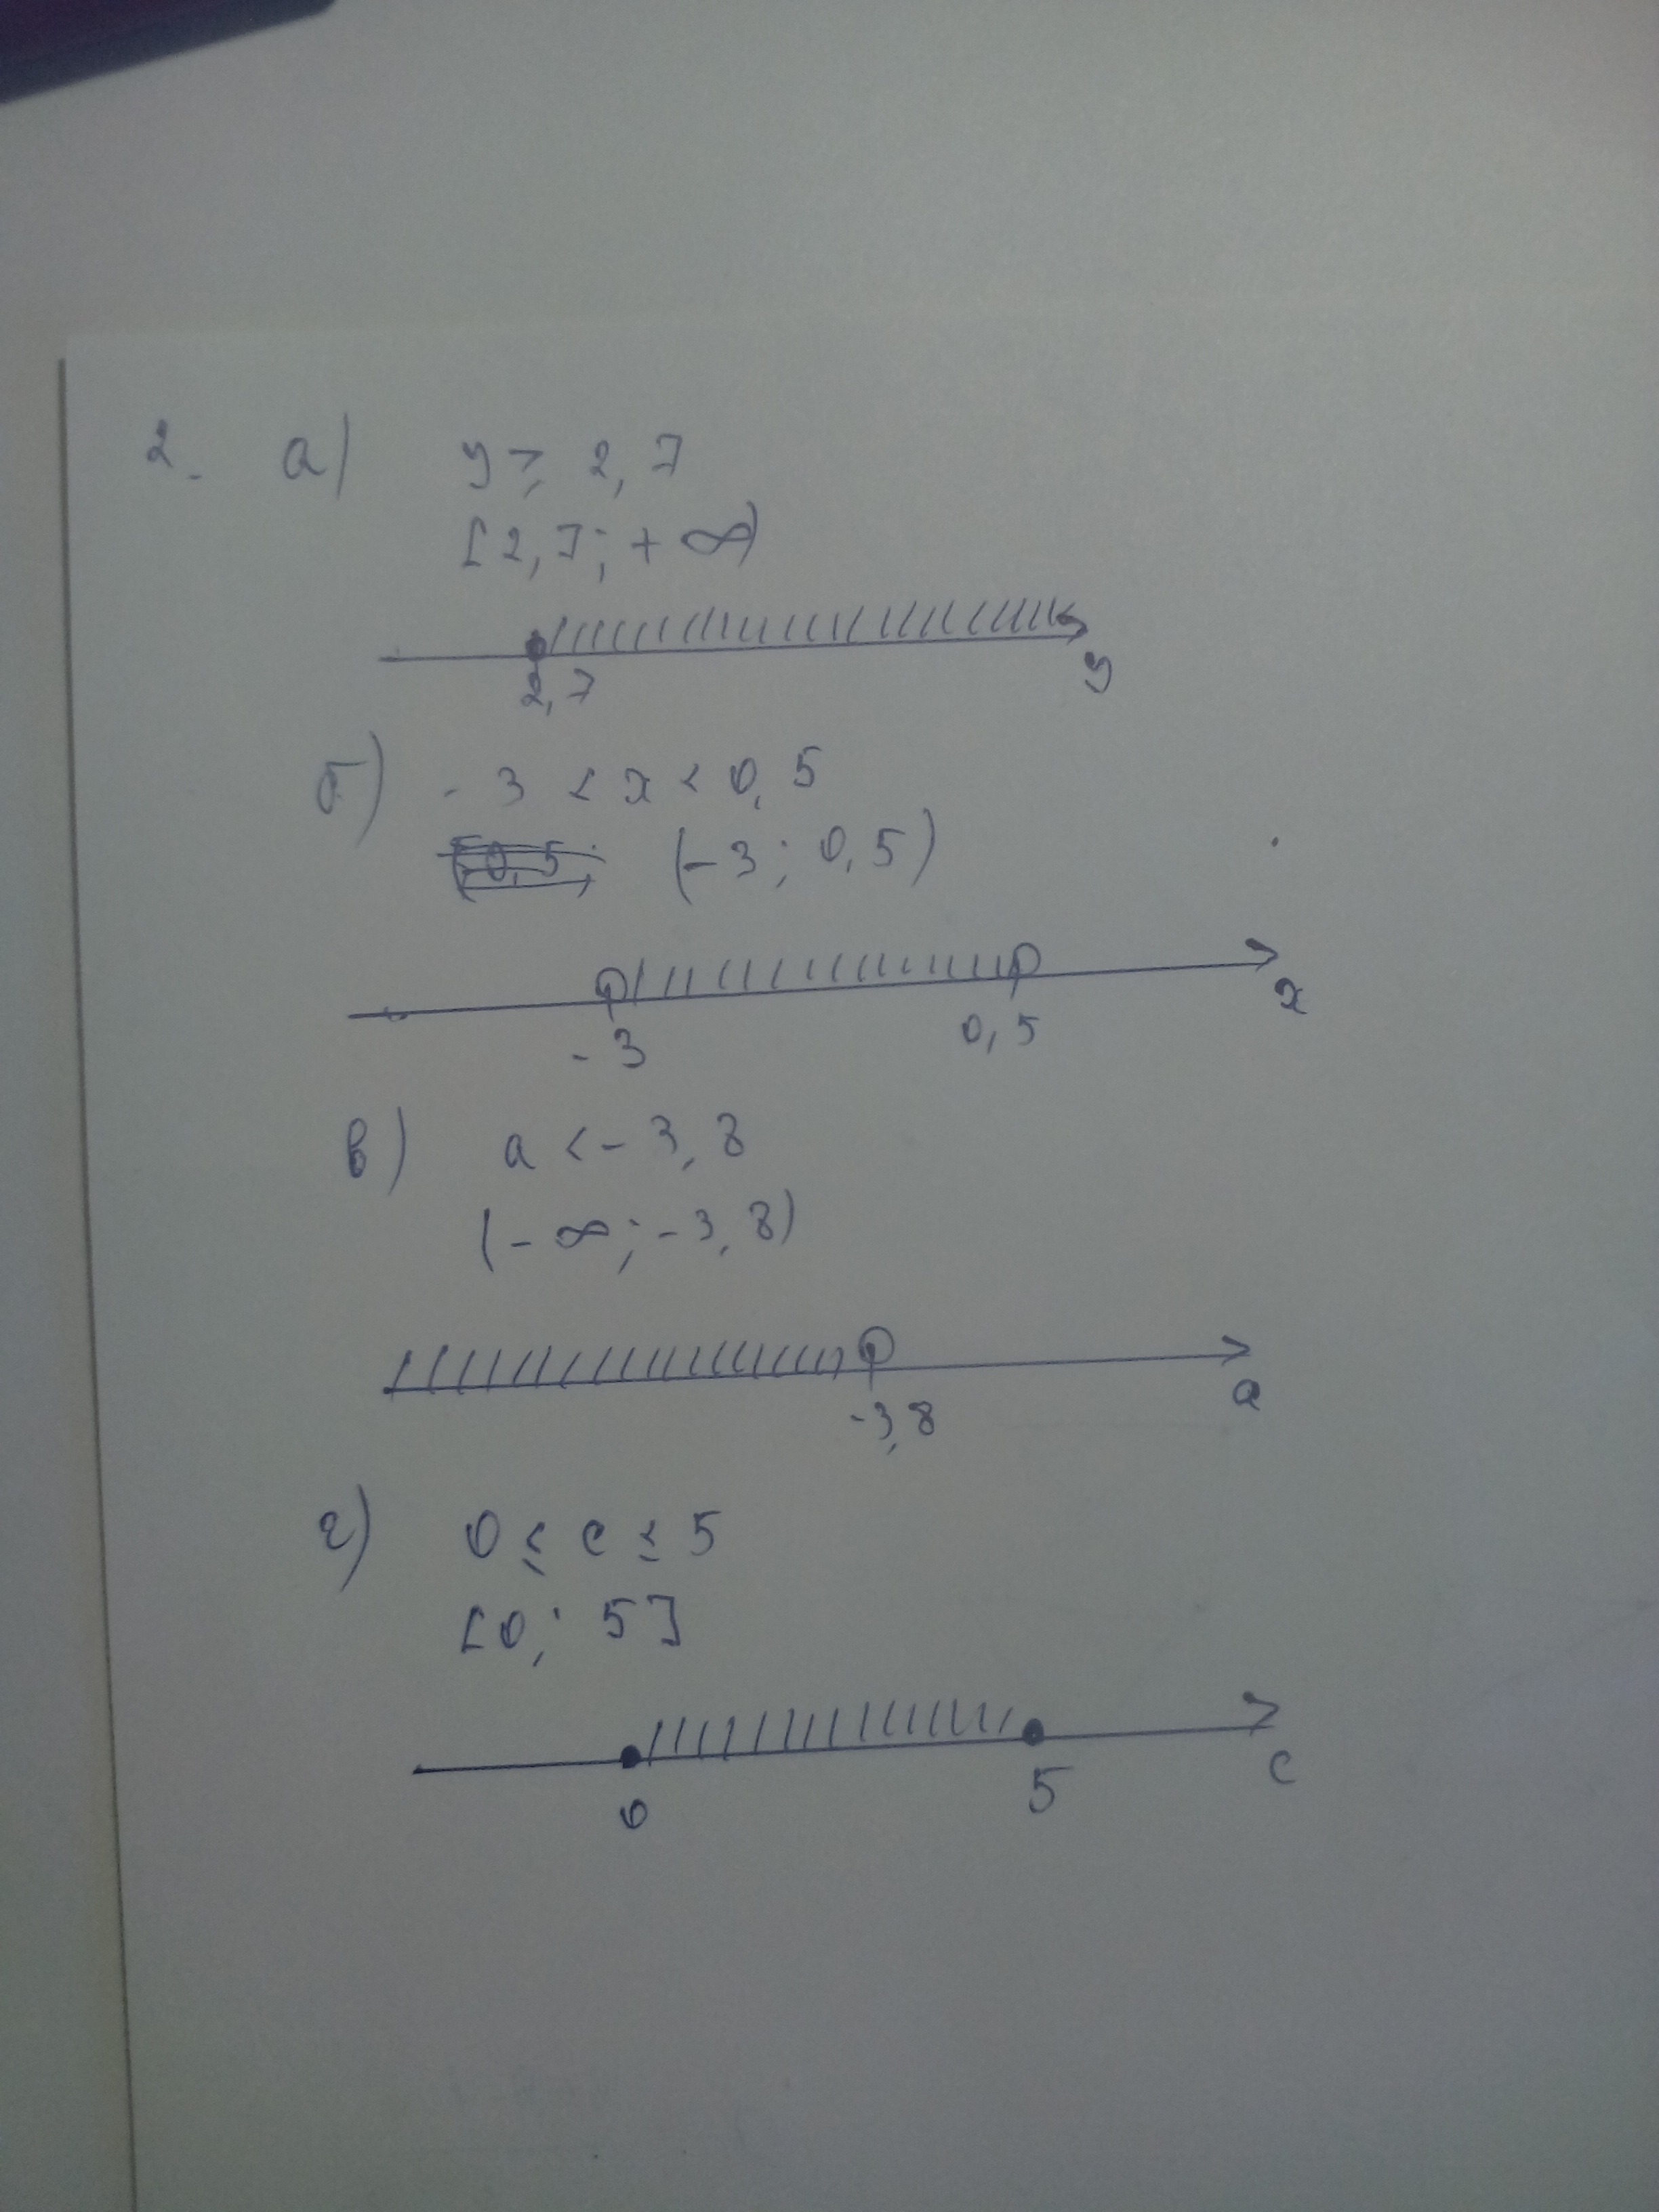 2. а) y ≥ 2,7
[2,7; + ∞)
2,7 y
б) - 3 < x < 0,5
(-3; 0,5)
-3 0,5 x
в) a < - 3,8
(- ∞; -3,8)
-3,8 a
г) 0 ≤ c ≤ 5
[0; 5]
0 5 c